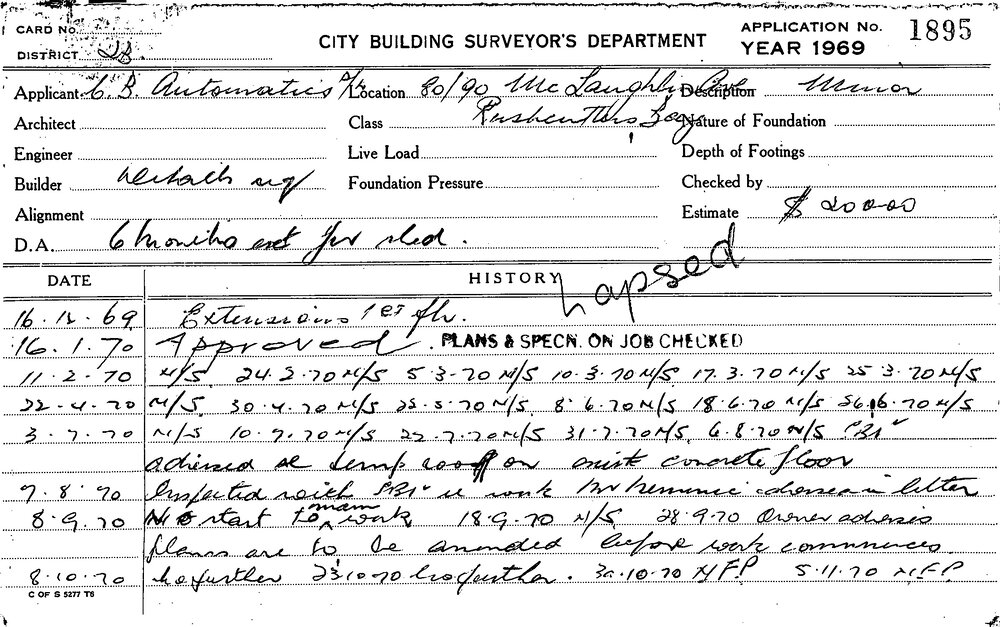 CARD No.
DISTRICT 2B.
CITY BUILDING SURVEYOR'S DEPARTMENT
APPLICATION No. 1895
YEAR 1969
Applicant C. B. Automatics P/L Location 80/90 McLaughlin Ave Description Minor
Architect Class Rushcutters Bay Nature of Foundation
Engineer Live Load Depth of Footings
Builder Foundation Pressure Checked by
Alignment Estimate $ 20000
D.A. 6 months ext for shed.
DATE HISTORY Lapsed
16.12.69 Extensions 1st flr.
16.1.70 Approved. PLANS & SPECN. ON JOB CHECKED
11.2.70 N/S 24.2.70 N/S 5.3.70 N/S 10.3.70 N/S 17.3.70 N/S 25.3.70 N/S
22.4.70 N/S 30.4.70 N/S 22.5.70 N/S 8.6.70 N/S 18.6.70 N/S 26.6.70 N/S
3.7.70 N/S 10.7.70 N/S 22.7.70 N/S 31.7.70 N/S 6.8.70 N/S "SBI"
advised re temp roof on exist concrete floor
7.8.70 Inspected with "SBI" re work letter
8.9.70 No start to main work 18.9.70 N/S 28.9.70 Owner advises
plans are to be amended before work commences.
8.10.70 No further 23.10.70 No further. 30.10.70 NFP 5.11.70 N.F.P.
C OF S 5277 T6